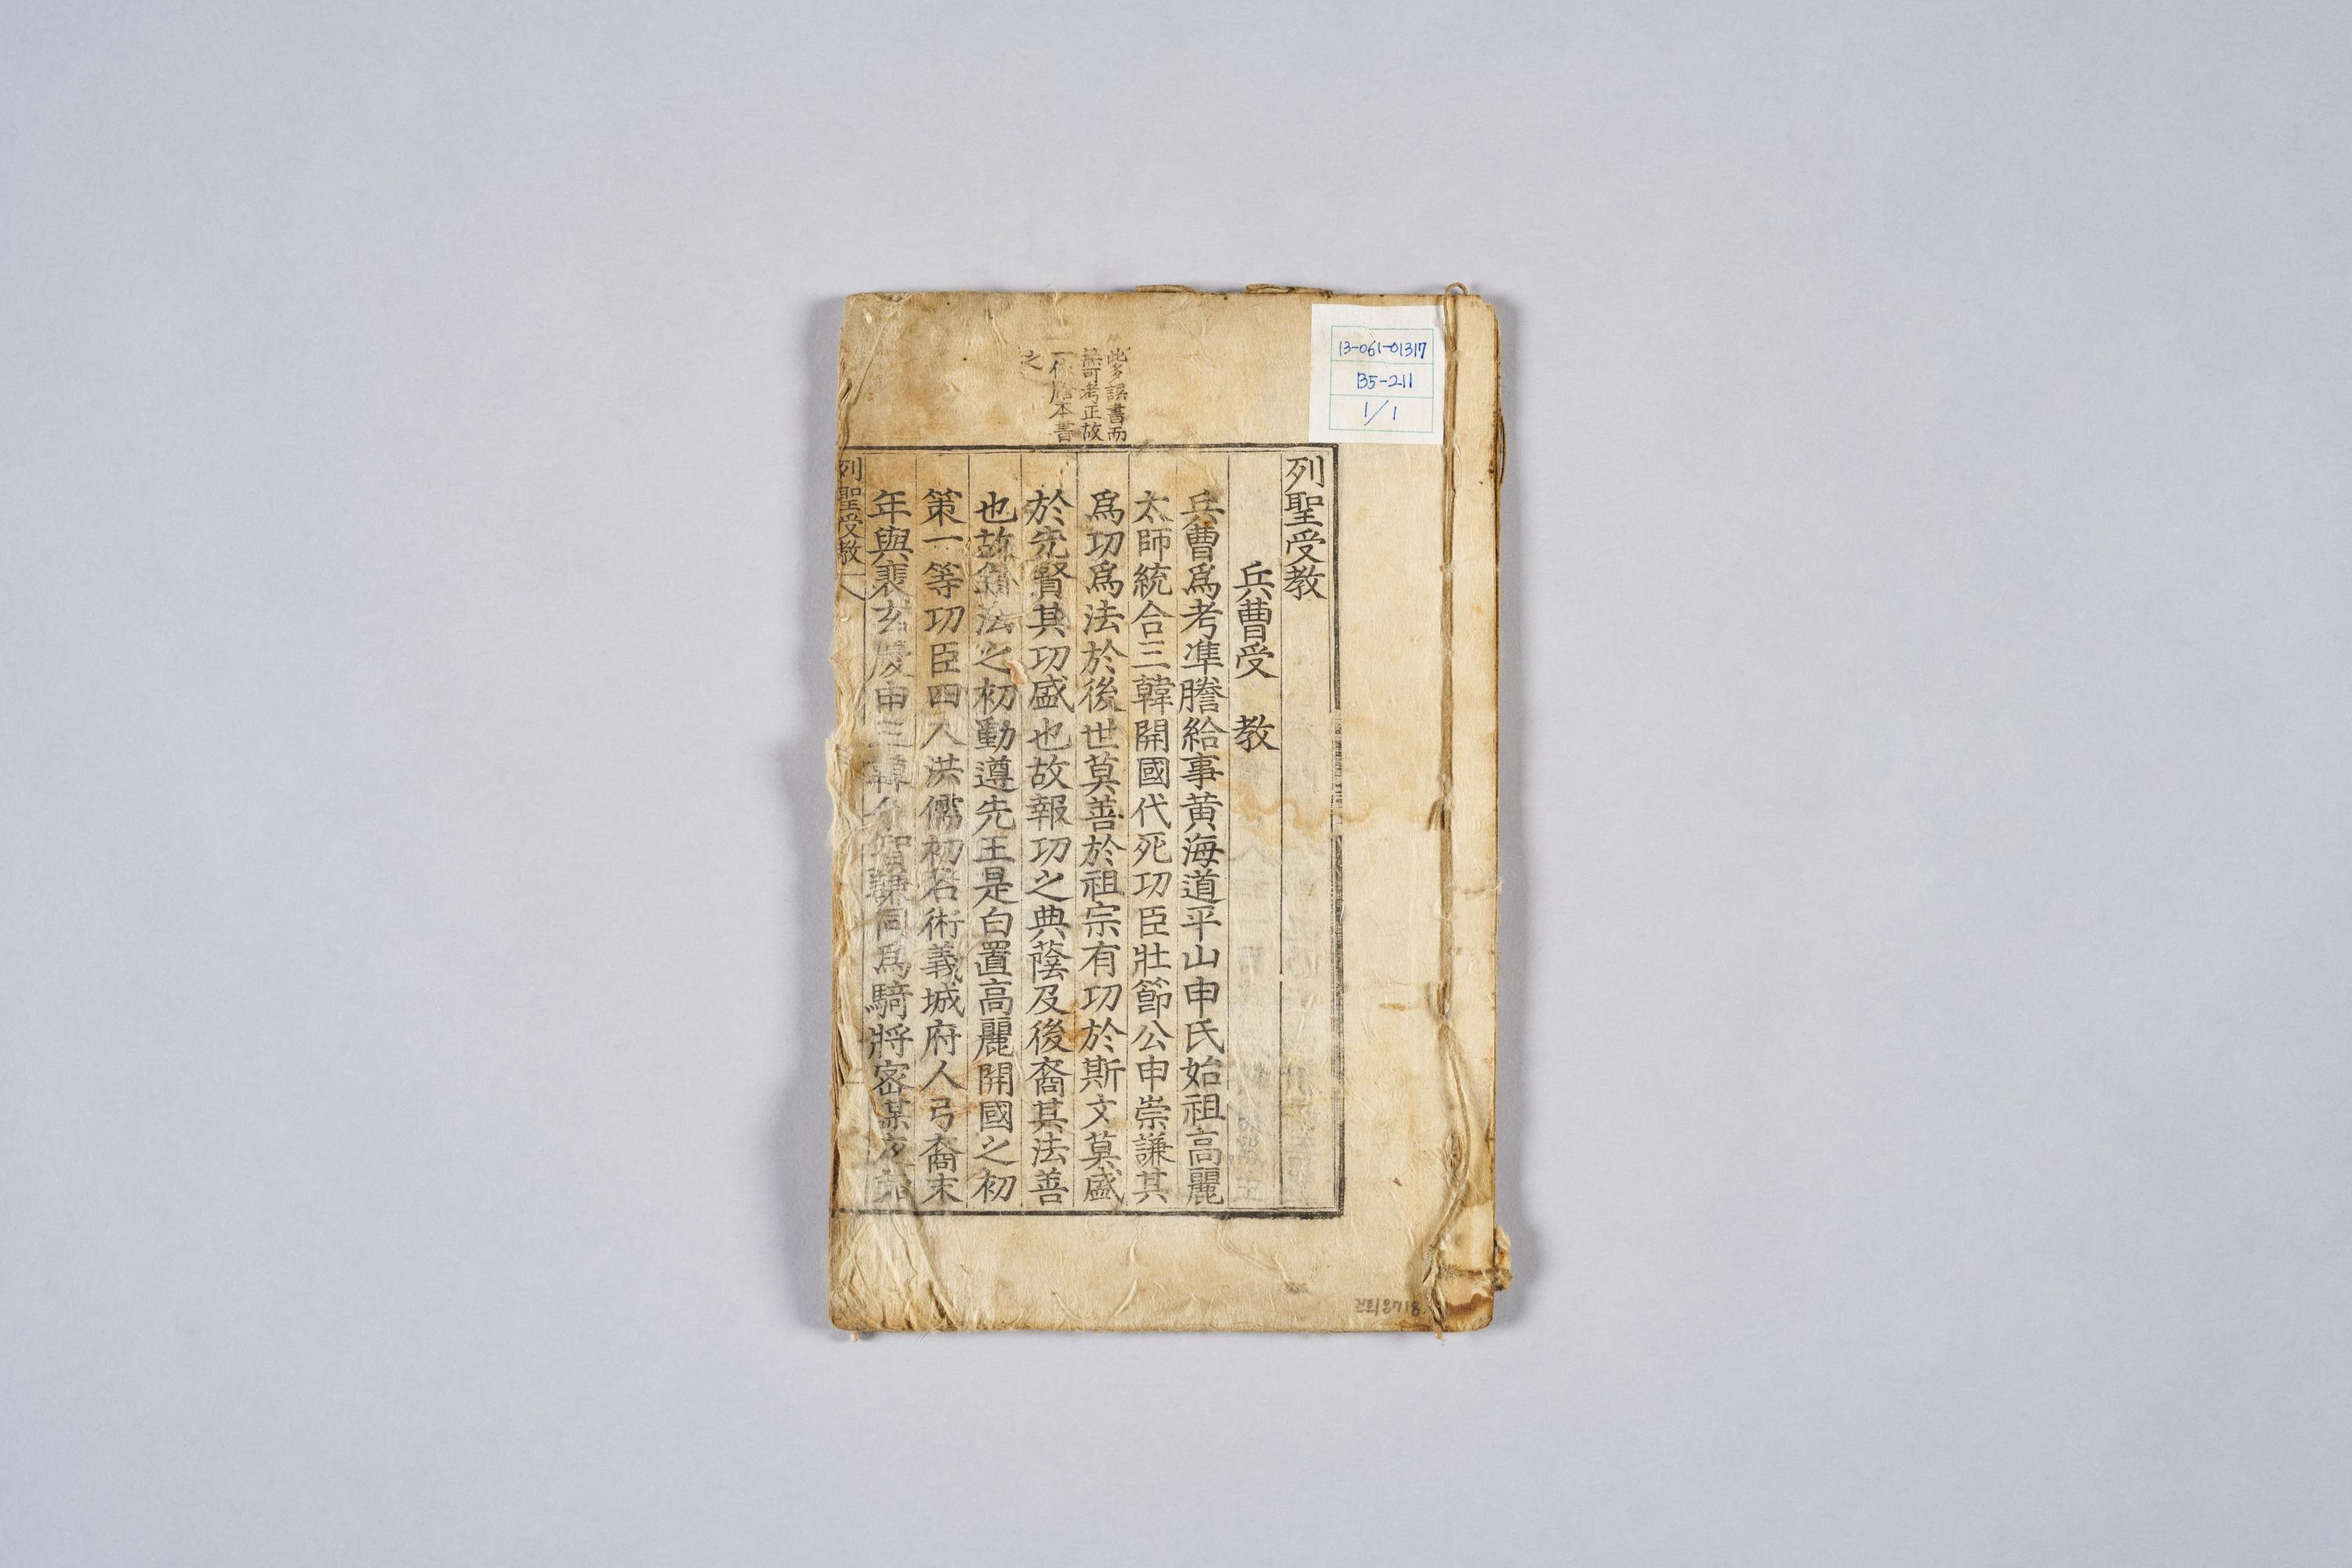 13-061-01317
B5-211
1/1
此多誤書而
無可考正故
一依謄本書
之
列聖受教
兵曹受 教
兵曹爲考準謄給事黃海道平山申氏始祖高麗
太師統合三韓開國代死功臣壯節公申崇謙其
爲功爲法於後世莫善於祖宗有功於斯文莫盛
於先賢其功盛也故報功之典蔭及後裔其法善
也故 法之初動遵先王是白置高麗開國之初
策一等功臣四人洪儒初名術義城府人弓裔末
年與裴玄慶申 爲騎將密謀
列聖受教